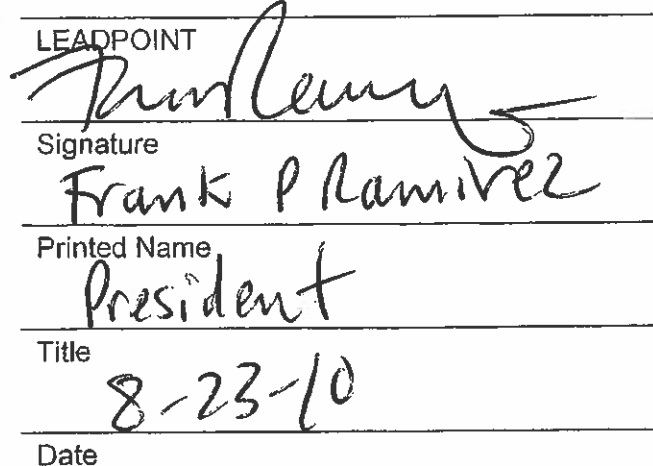 LEADPOINT
Signature
Frank P Ramirez
Printed Name
President
Title
8-23-10
Date